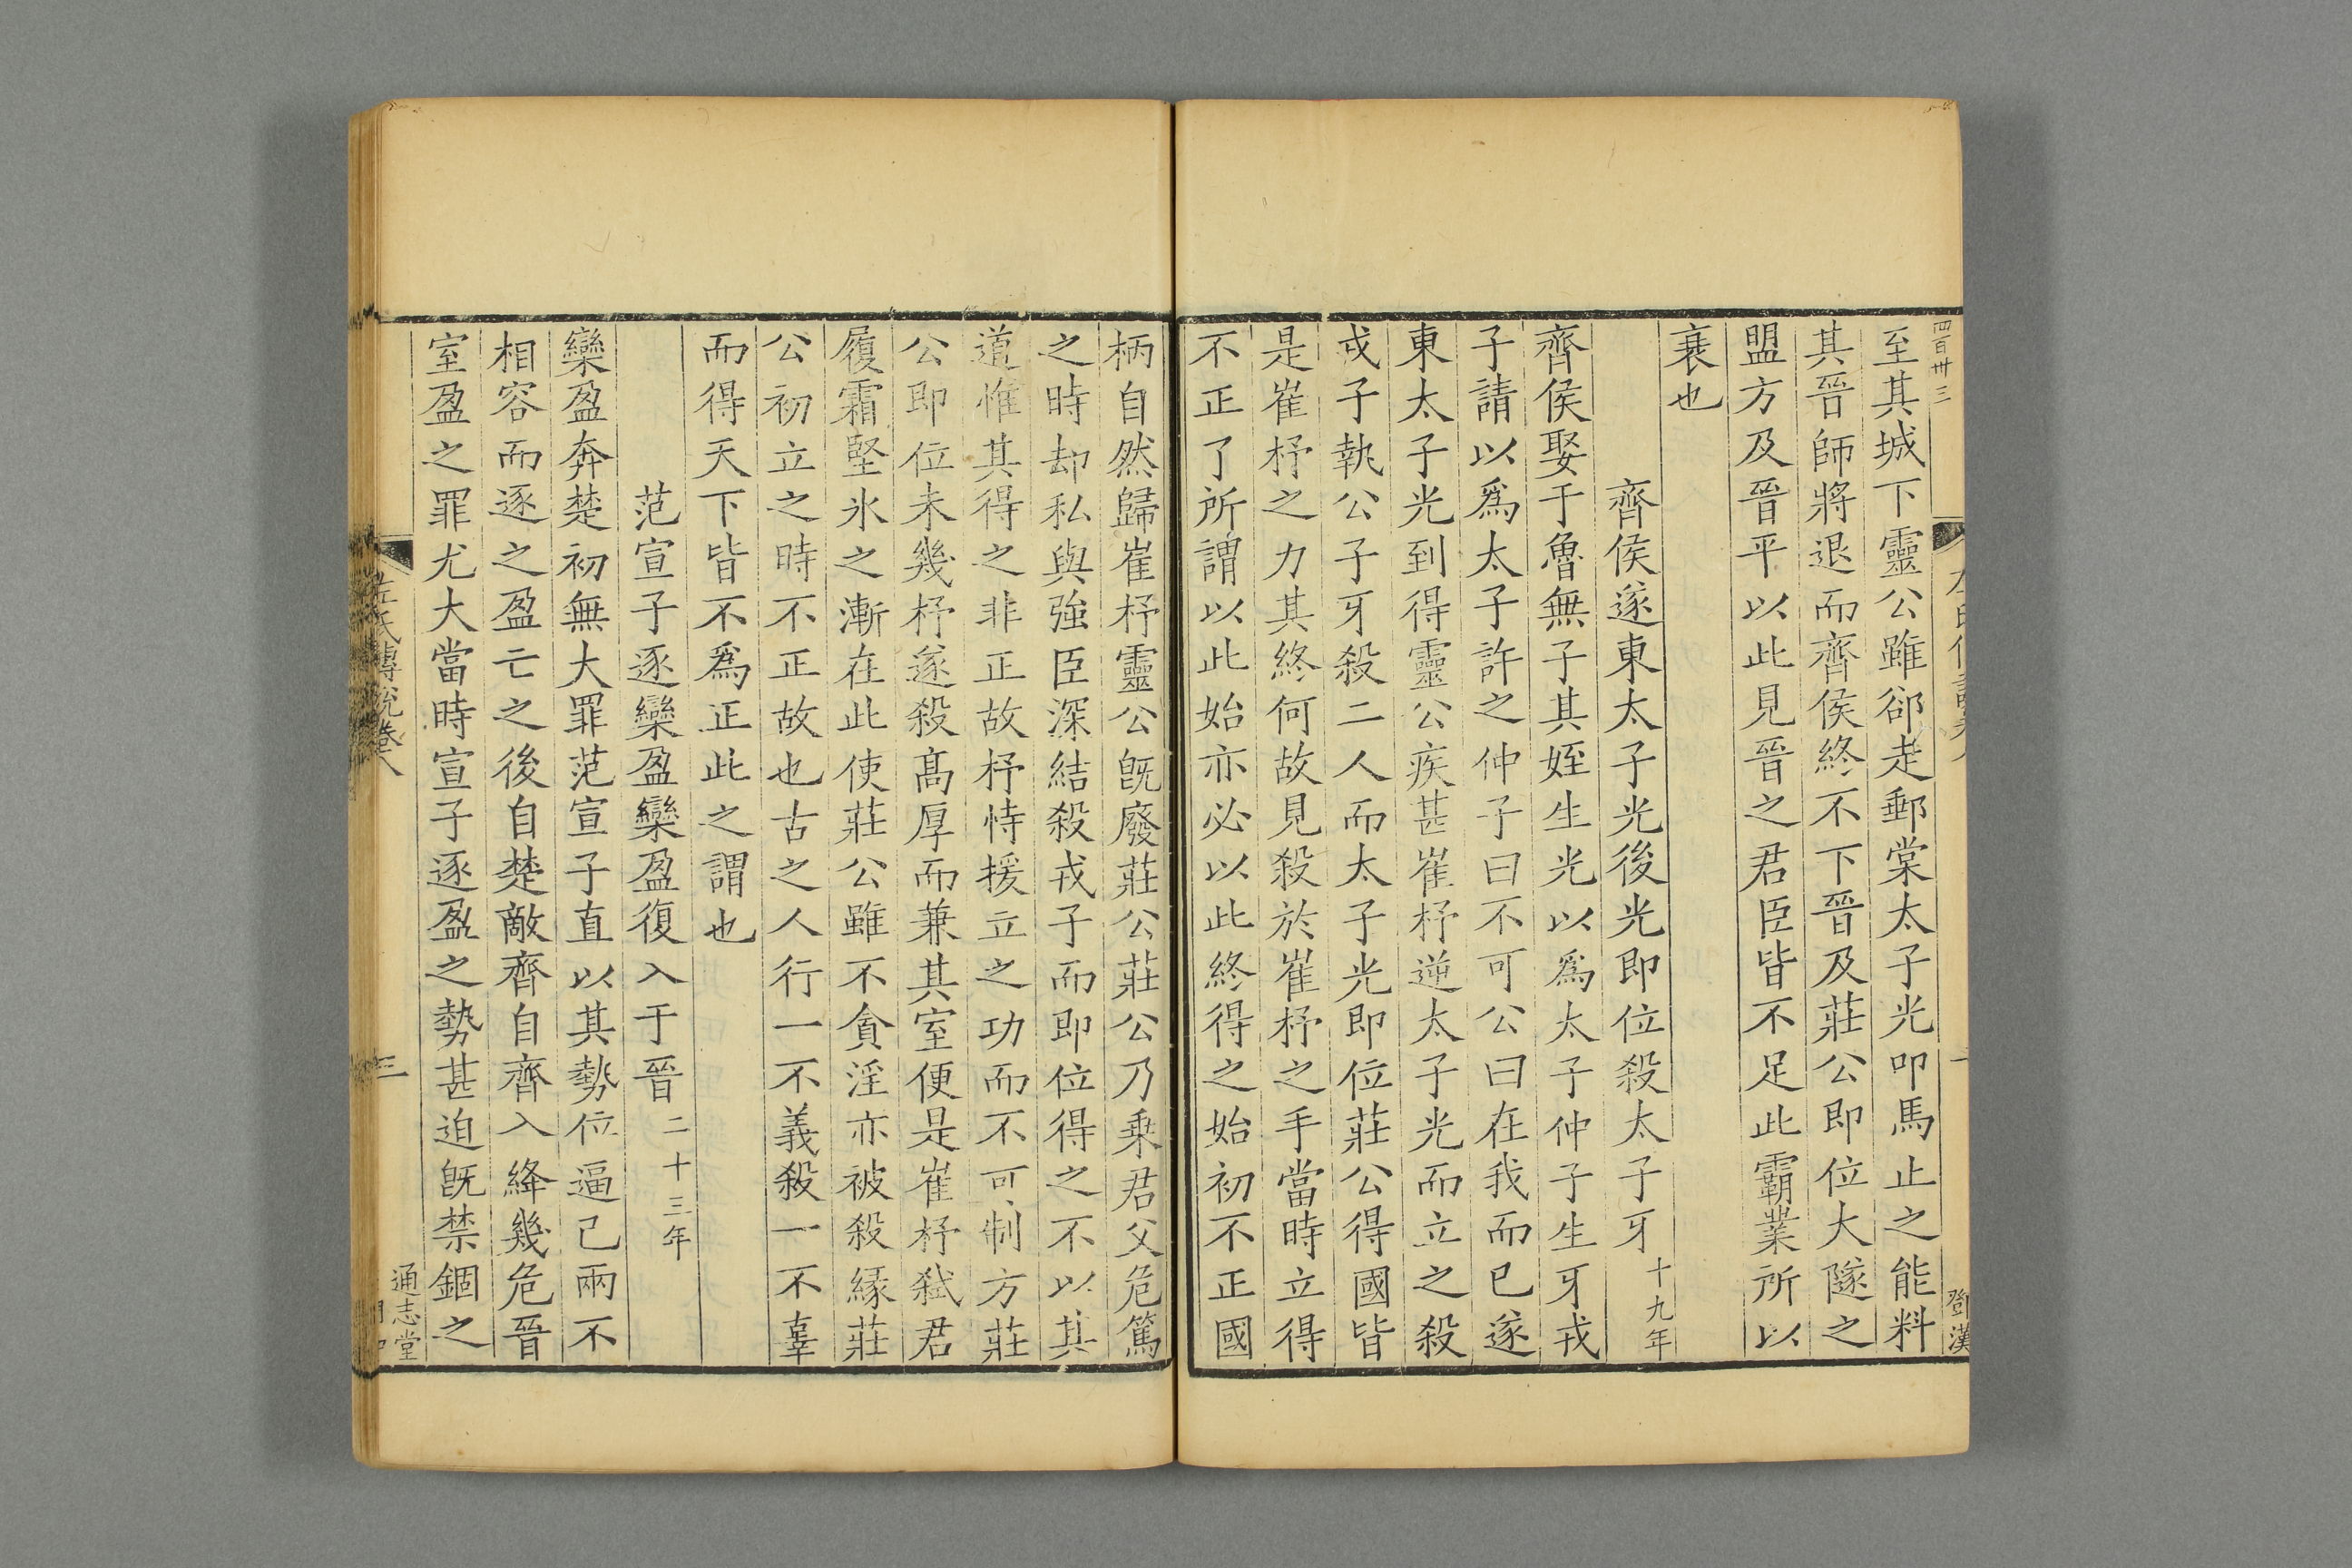 四百卅三
鄧漢
至其城下靈公雖郤走郵棠太子光叩馬止之能料
其晉師將退而齊侯終不下晉及莊公即位大隧之
盟方及晉平以此見晉之君臣皆不足此霸業所以
衰也
齊侯遂東太子光後光即位殺太子牙十九年
齊侯娶于魯無子其姪生光以爲太子仲子生牙戎
子請以爲太子許之仲子曰不可公曰在我而已遂
東太子光到得靈公疾甚崔杼逆太子光而立之殺
戎子執公子牙殺二人而太子光即位莊公得國皆
是崔杼之力其終何故見殺於崔杼之手當時立得
不正了所謂以此始亦必以此終得之始初不正國
柄自然歸崔杼靈公旣廢莊公莊公乃乗君父危篤
之時却私與強臣深結殺戎子而即位得之不以其
道惟其得之非正故杼恃援立之功而不可制方莊
公即位未幾杼遂殺髙厚而兼其室便是崔杼弑君
履霜堅氷之漸在此使莊公雖不貪淫亦被殺縁莊
公初立之時不正故也古之人行一不義殺一不辜
而得天下皆不爲正此之謂也
范宣子逐欒盈欒盈復入于晉二十三年
欒盈奔楚初無大罪范宣子直以其勢位逼己兩不
相容而逐之盈亡之後自楚敵齊自齊入絳幾危晉
室盈之罪尤大當時宣子逐盈之勢甚迫旣禁錮之
左氏傳說卷八
三
通志堂